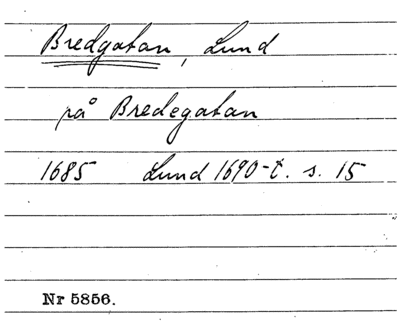 Bredgatan, Lund
på Bredegatan
1685 Lund 1690-t. s. 15
Nr 5856.